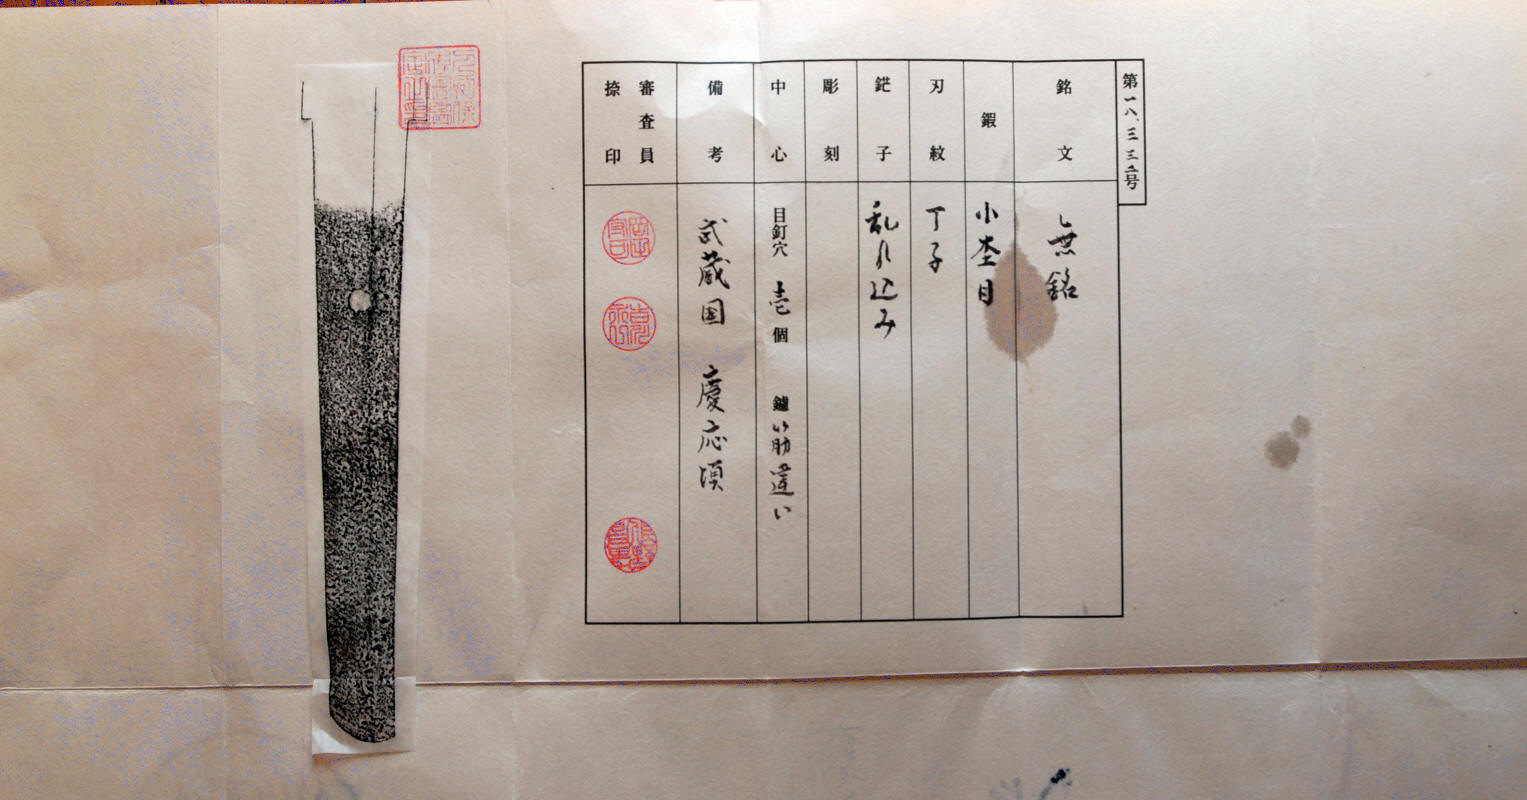 第一八、三三二号
銘文 無銘
鍜 小杢目
刃紋 丁子
鋩子 乱れ込み
彫刻
中心 目釘穴 壱個 鑢 筋違い
備考 武蔵国 慶応頃
審査員
捺印